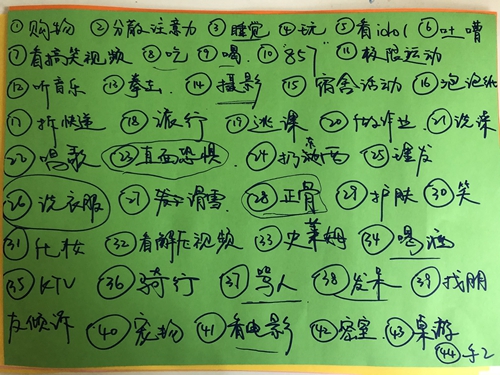 ① 购物 ② 分散注意力 ③ 睡觉 ④ 玩 ⑤ 看idol ⑥ 吐嘈
⑦ 看搞笑视频 ⑧ 吃 ⑨ 喝 ⑩ "857" ⑪ 极限运动
⑫ 听音乐 ⑬ 拳击 ⑭ 摄影 ⑮ 宿舍活动 ⑯ 泡泡纸
⑰ 拆快递 ⑱ 旅行 ⑲ 逃课 ⑳ 做作业 ㉑ 洗澡
㉒ 唱歌 ㉓ 直面恐惧 ㉔ 扔东西 ㉕ 理发
㉖ 洗衣服 ㉗ 滑雪 ㉘ 正骨 ㉙ 护肤 ㉚ 笑
㉛ 化妆 ㉜ 看解压视频 ㉝ 史莱姆 ㉞ 喝酒
㉟ KTV ㊱ 骑行 ㊲ 骂人 ㊳ 发呆 ㊴ 找朋
友倾诉 ㊵ 宠物 ㊶ 看电影 ㊷ 密室 ㊸ 桌游
㊹ 手工